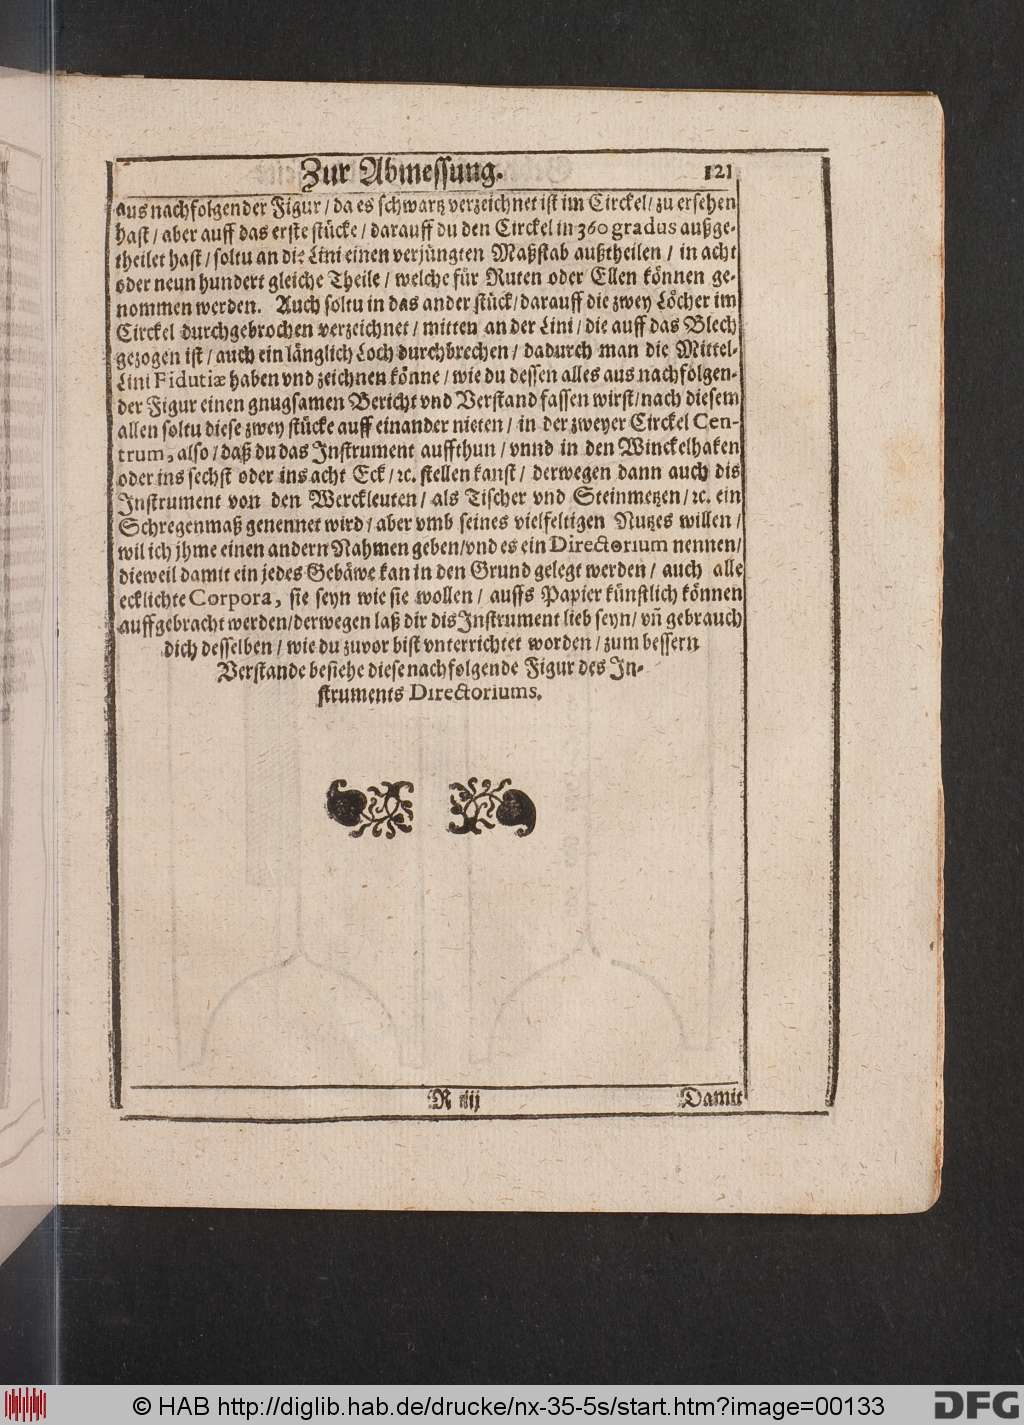 Zur Abmessung. 121
aus nachfolgender Figur / da es schwartz verzeichnet ist im Circkel / zu ersehen
hast / aber auff das erste stücke / darauff du den Circkel in 360 gradus außge-
theilet hast / soltu an die Lini einen verjüngten Maßstab außtheilen / in acht
oder neun hundert gleiche Theile / welche für Ruten oder Ellen können ge-
nommen werden. Auch soltu in das ander stück / darauff die zwey Löcher im
Circkel durchgebrochen verzeichnet / mitten an der Lini / die auff das Blech
gezogen ist / auch ein länglich Loch durchbrechen / dadurch man die Mittel-
Lini Fidutiæ haben vnd zeichnen könne / wie du dessen alles aus nachfolgen-
der Figur einen gnugsamen Bericht vnd Verstand fassen wirst / nach diesem
allen soltu diese zwey stücke auff einander nieten / in der zweyer Circkel Cen-
trum, also / daß du das Instrument auffthun / vnnd in den Winckelhaken
oder ins sechst oder ins acht Eck / ꝛc. stellen kanst / derwegen dann auch dis
Instrument von den Werckleuten / als Tischer vnd Steinmetzen / ꝛc. ein
Schregenmaß genennet wird / aber vmb seines vielfeltigen Nutzes willen /
wil ich jhme einen andern Nahmen geben / vnd es ein Directorium nennen /
dieweil damit ein jedes Gebäwe kan in den Grund gelegt werden / auch alle
ecklichte Corpora, sie seyn wie sie wollen / auffs Papier künstlich können
auffgebracht werden / derwegen laß dir dis Instrument lieb seyn / vñ gebrauch
dich desselben / wie du zuvor bist vnterrichtet worden / zum bessern
Verstande besiehe diese nachfolgende Figur des In-
struments Directoriums.
R iij Damit
© HAB http://diglib.hab.de/drucke/nx-35-5s/start.htm?image=00133 DFG